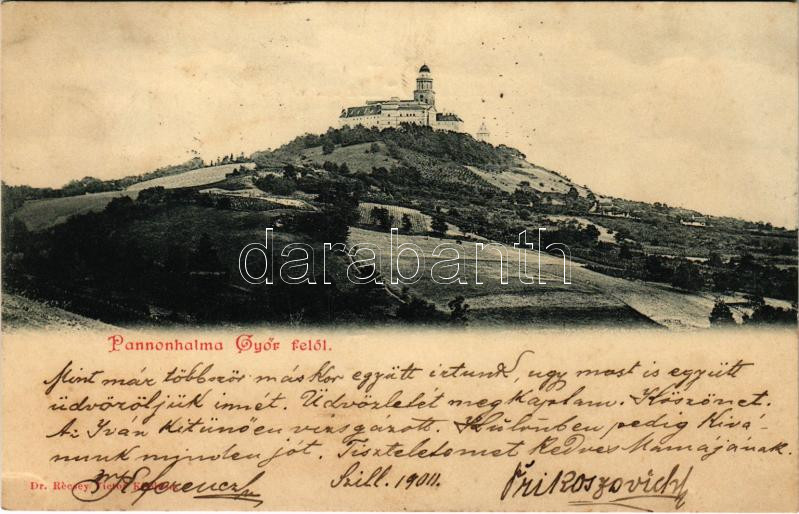 darabanth
Pannonhalma Győr felől.
Mint már többször máskor együtt írtunk, ugy most is együtt
üdvözöljük ismét. Üdvözletét megkaptam. Köszönet.
Az Iván kitünően vizsgázott. Különben pedig Kiva-
nunk minden jót. Tiszteletemet Kedves Mamájának.
Dr. Récsey Victor
Ferencz Szill. 1900. Prikoszovich